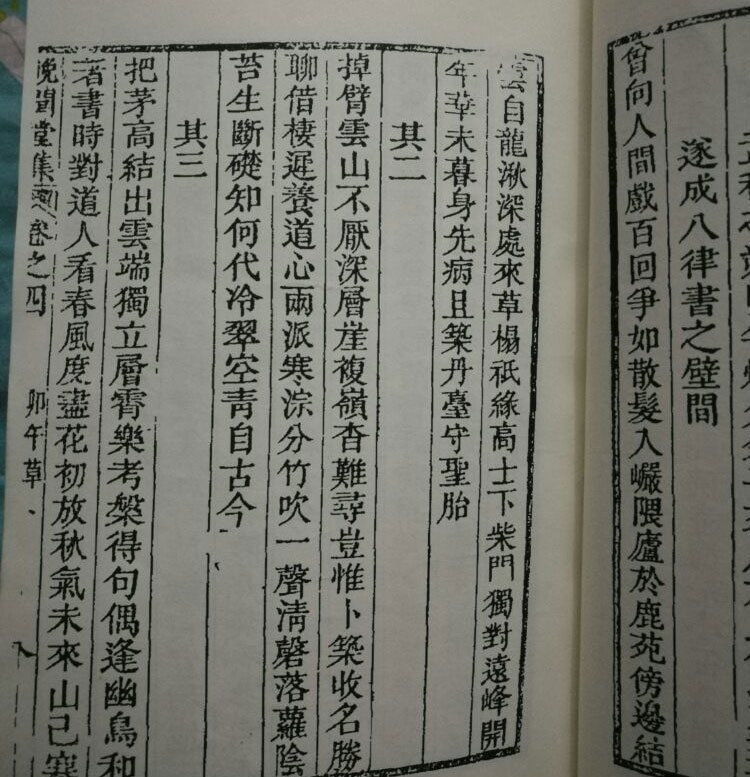 遂成八律書之壁間
曾向人間戲百回爭如散髮入巗隈廬於鹿苑傍邊結
雲自龍湫深處來草榻祇緣高士下柴門獨對遠峰開
年華未暮身先病且築丹臺守聖胎
其二
掉臂雲山不厭深層崖複嶺杳難尋豈惟卜築收名勝
聊借棲遲養道心兩派寒淙分竹吹一聲清磬落蘿陰
苔生斷礎知何代冷翠空青自古今
其三
把茅高結出雲端獨立層霄樂考槃得句偶逢幽鳥和
著書時對道人看春風度盡花初放秋氣未來山已寒
晚聞堂集卷之四 卯午草